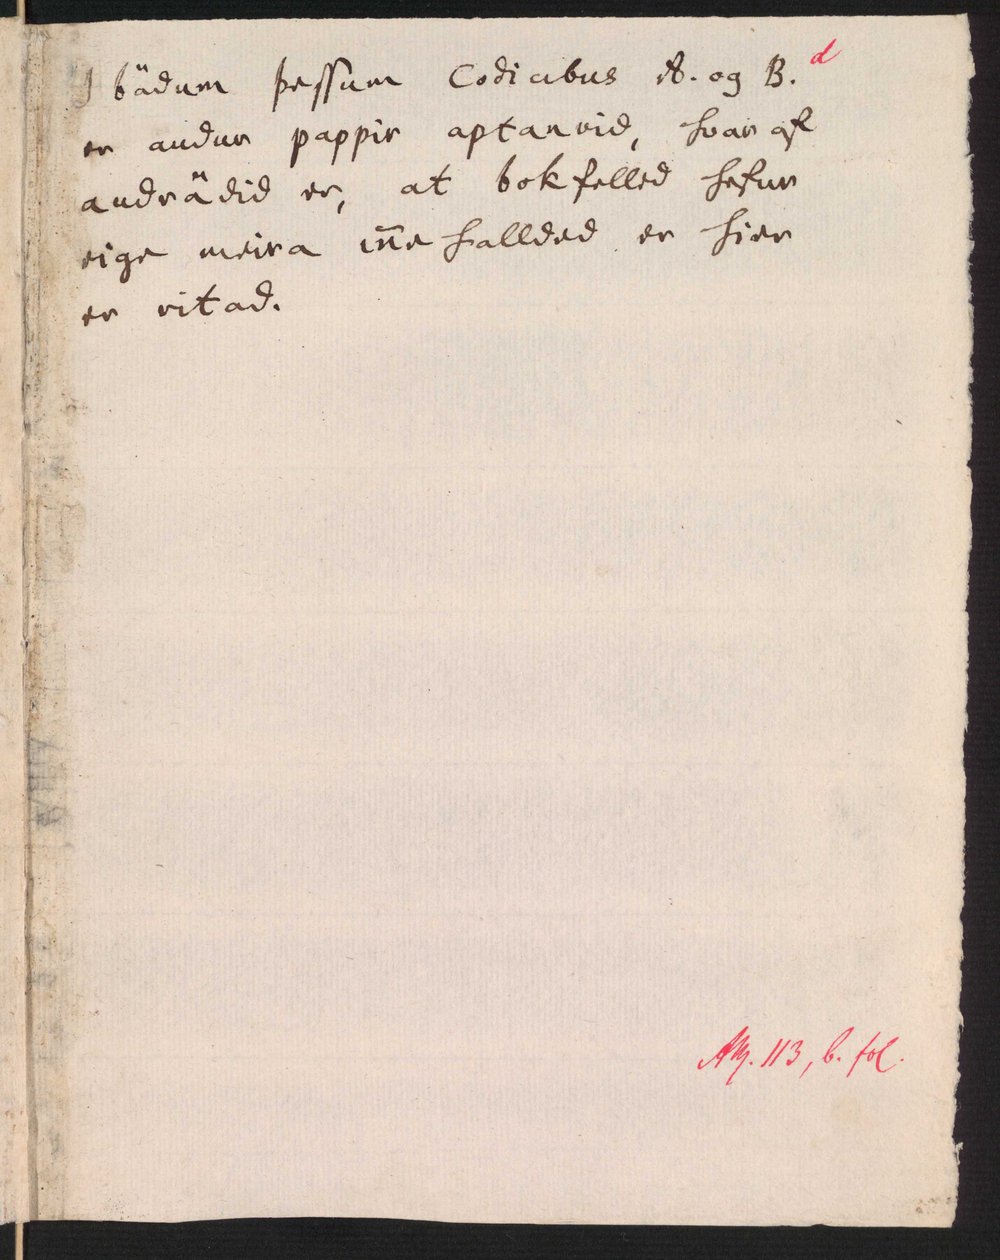 I bädum þessum Codicibus A. og B. d
er audur pappir aptanvid, hvar af
audrädid er, at bokfelled hefur
eige meira iñe halldid er hier
er ritad.
AM. 113, b. fol.